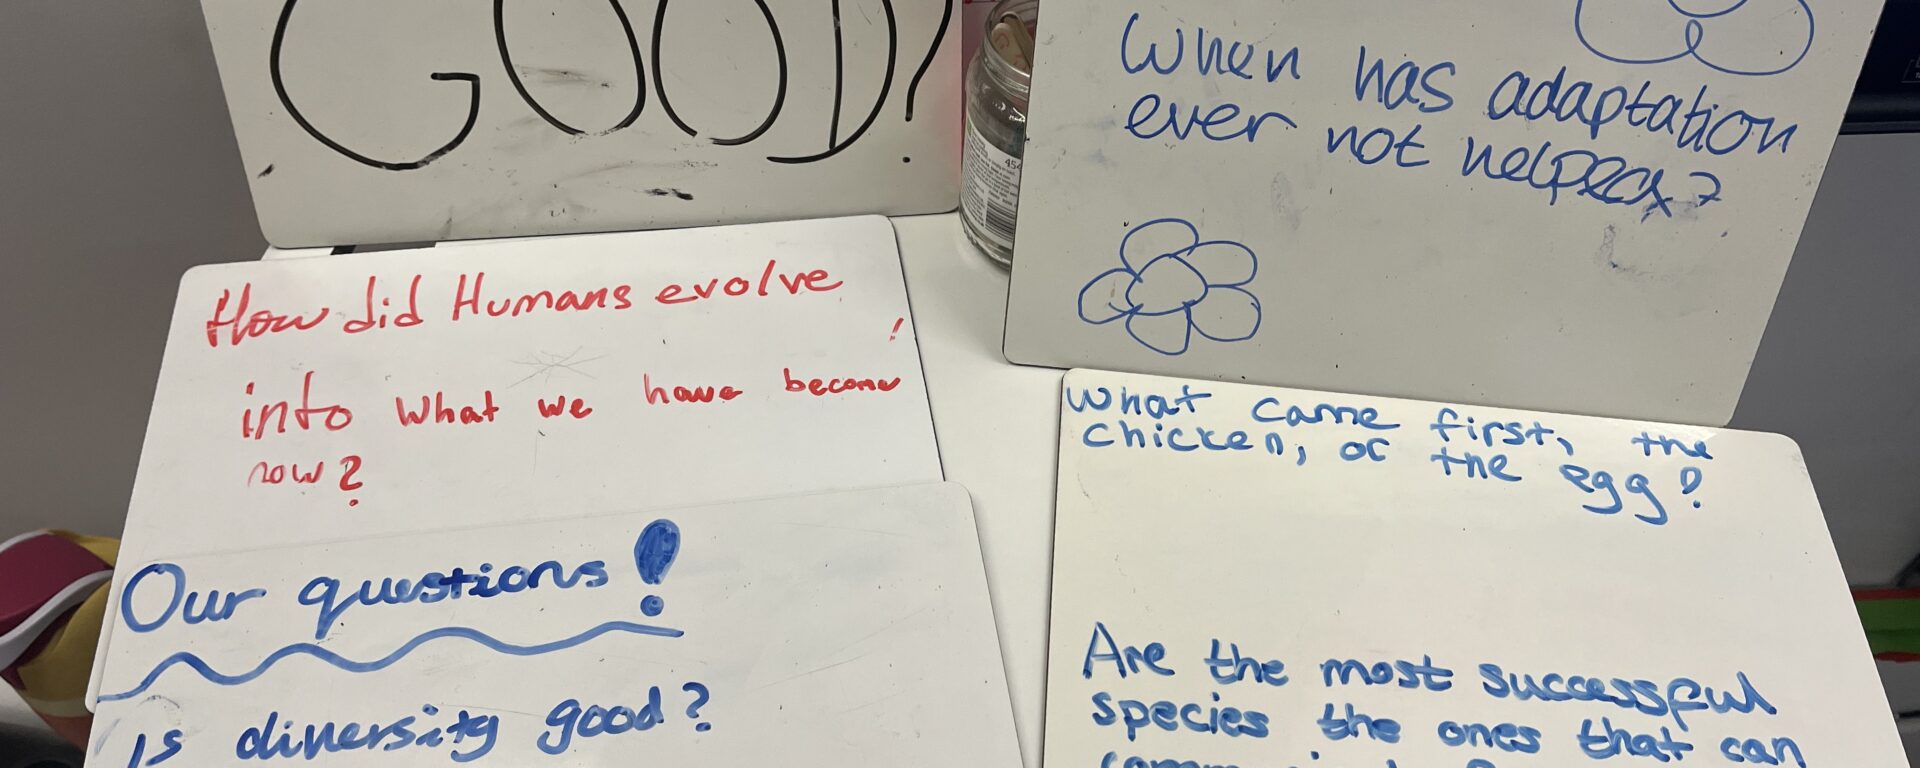 GOOD?
How did Humans evolve
into what we have become
now?
Our questions!
Is diversity good?
When has adaptation
ever not helped?
What came first, the
chicken, or the egg?
Are the most successful
species the ones that can